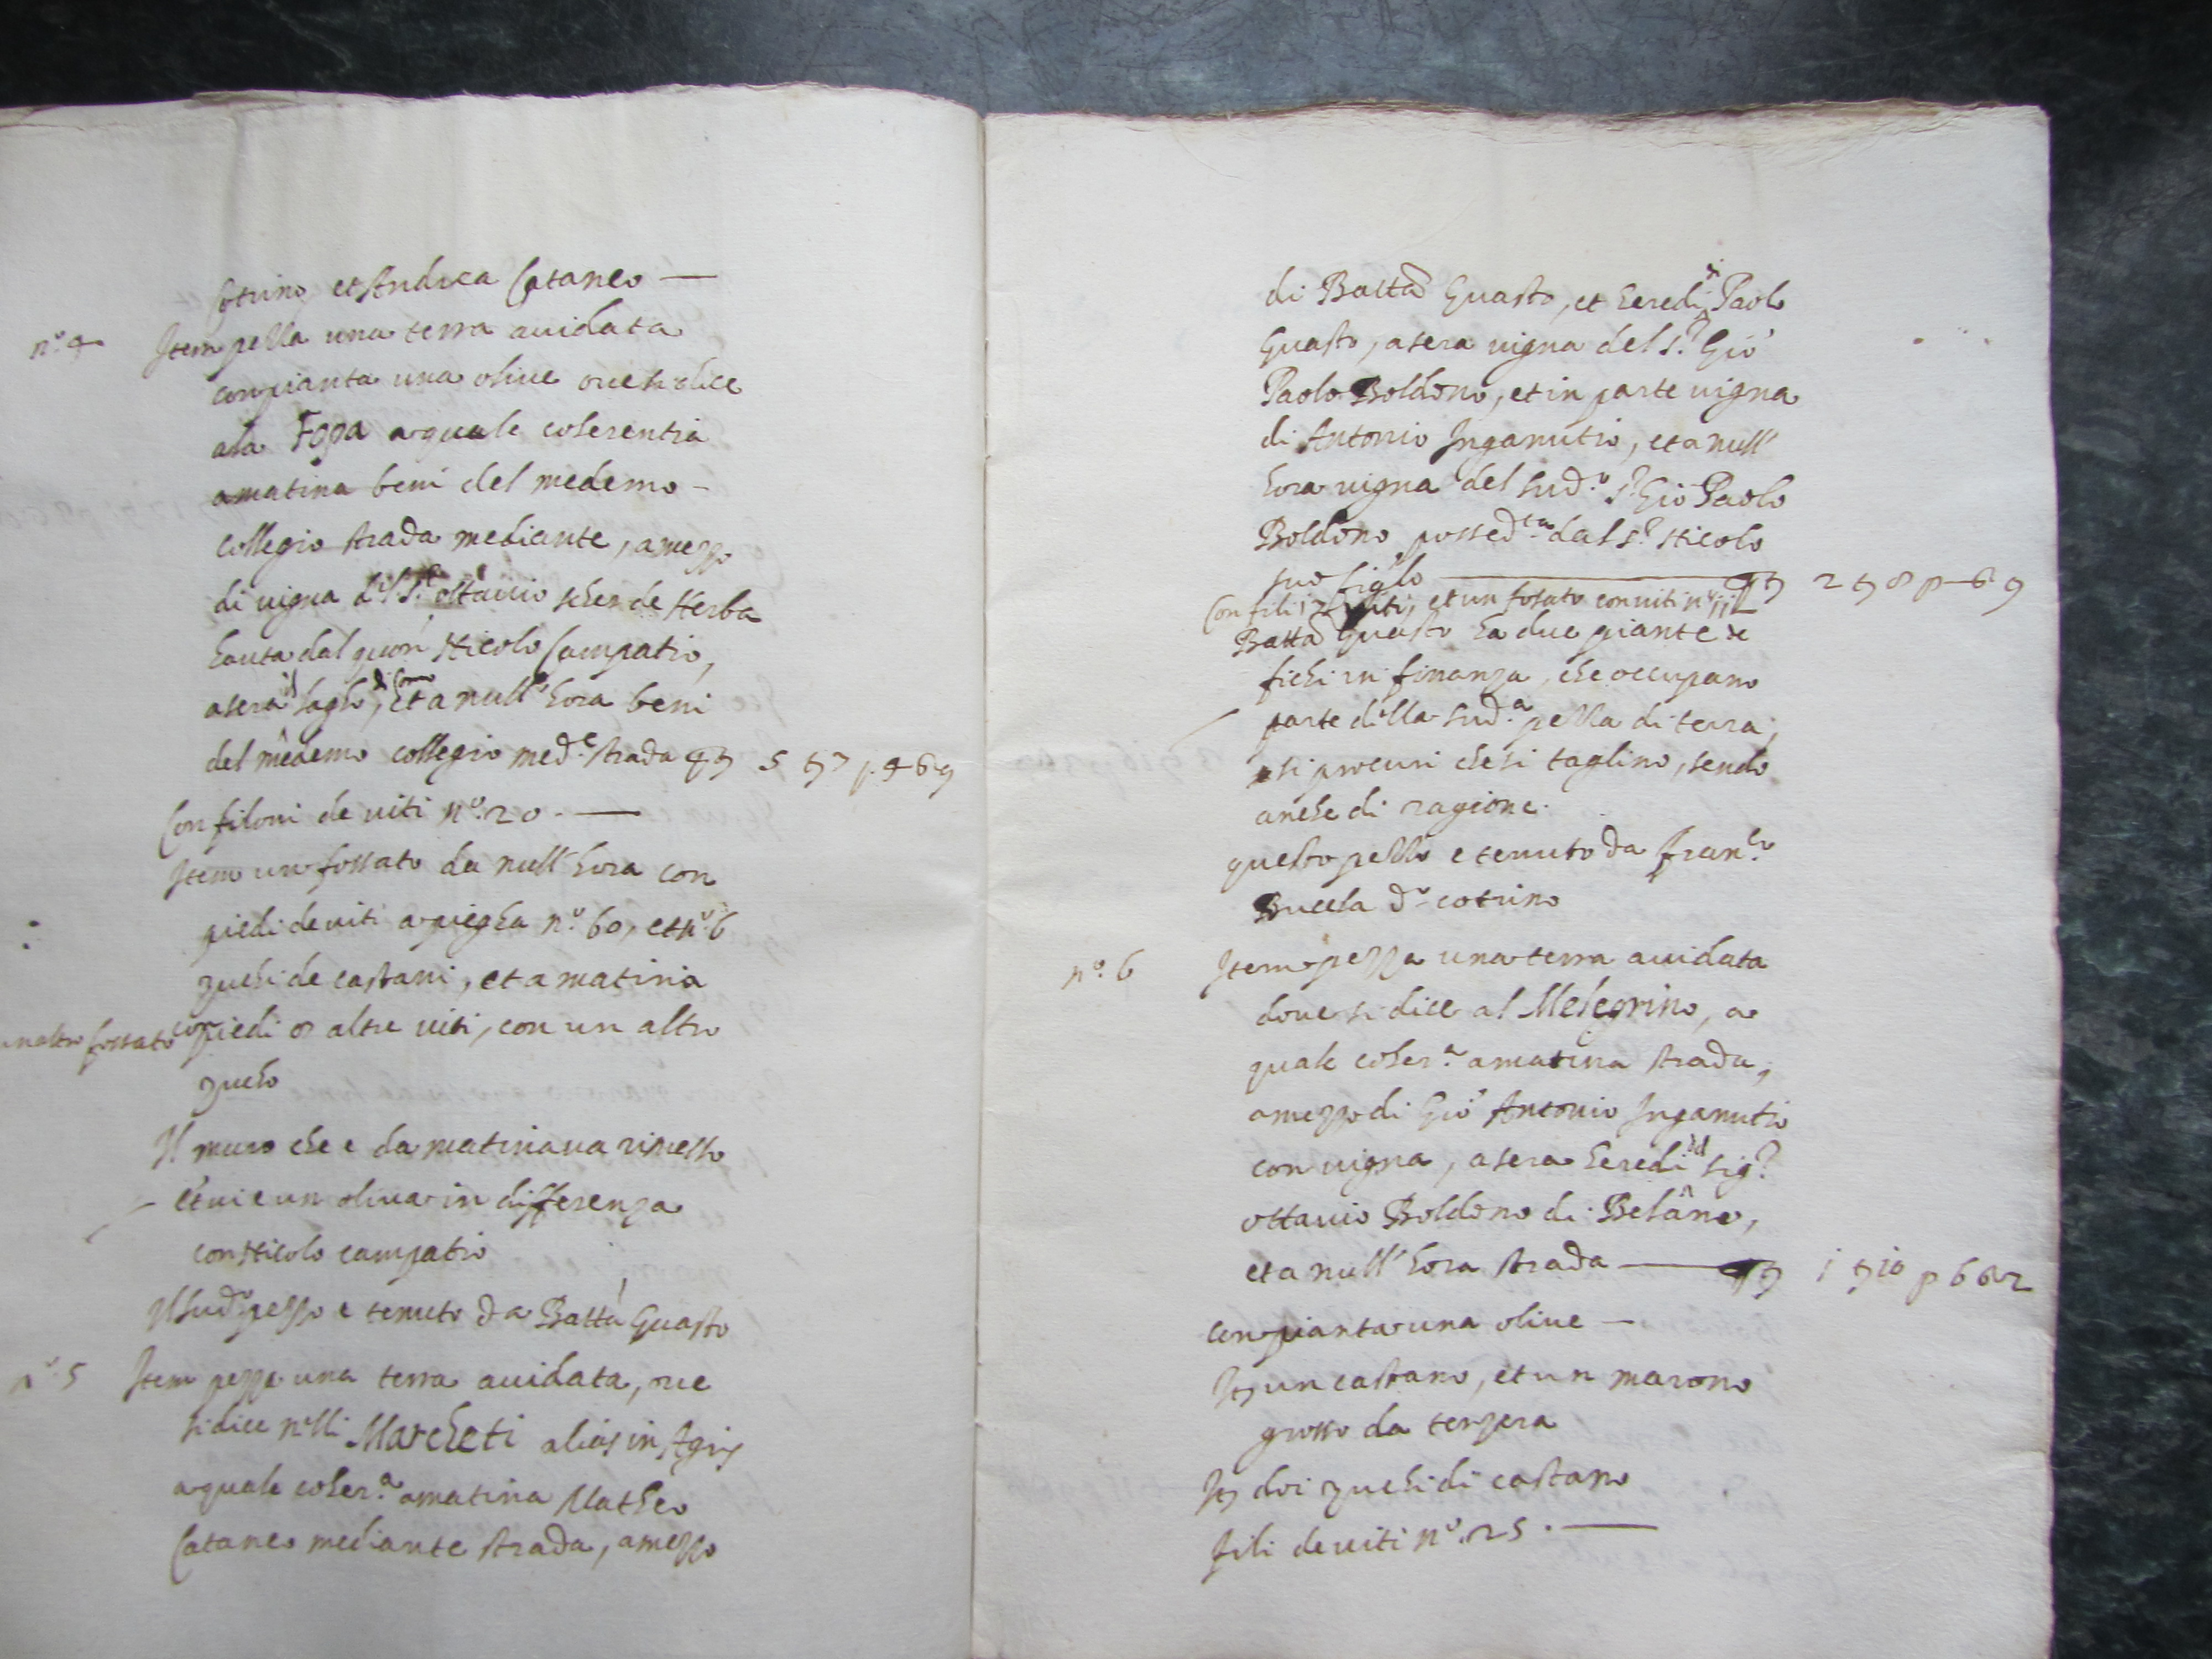 Cotrino et Andrea Cataneo —
n.º 4 Item pezza una terra avidata
con pianta una olive ove si dice
ala Fopa a quale coherentia
a matina beni del medemo –
collegio strada mediante, a mezzo
di vigna del S.r Ottavio scher de Herba
hauta dal Nicolo Campatio,
a sera il lagho di Como, et a null'hora beni
del medemo collegio med.e strada 5 7 p. 4 6 9
Con filoni de viti n.º 20 . —
Item un fossato da null'hora con
piedi de viti a piegha n.º 60, et n.º 6
zuchi de castani, et a matina
un altro fossato con piedi 8 altre viti, con un altro
zucho
Il muro che e da matina va rimesso
et vi e un oliva in differenza
con Nicolo campatio
Il sud.º pezzo e tenuto da Batta Guasto
n.º 5 Item pezza una terra avidata, ove
si dice nelli Marcheti alias in Agris
a quale coher.a a matina Matheo
Cataneo mediante strada, a mezzo
di Batta Guasto, et heredi di Paolo
Guasto, a sera vigna del s.r Gio
Paolo Boldono, et in parte vigna
di Antonio Inganutio, et a null'
hora vigna del sud.º s.r Gio Paolo
Boldono possed.ta dal s.r Nicolo
suo figlo — 2 8 p 6 9
Con fili 17 viti, et un fosato con viti n.º 11
Batta Guasto ha due piante de
fichi in finanza, che occupano
parte della sud.a pezza di terra,
si procuri che si taglino, sendo
anche di ragione.
questo pezzo e tenuto da Fran.co
Bucela d.º cotrino
n.º 6 Item pezza una terra avidata
dove si dice al Melegrino, a
quale coher.a a matina strada,
a mezzo di Gio Antonio Inganutio
con vigna, a sera heredi d sig.r
Ottavio Boldono di Belano,
et a null'hora strada — 1 10 p 6 6 2
Con pianta una olive —
It un castano, et un marono
grosso da terzera
It doi zuchi di castano
fili de viti n.º 25 . —